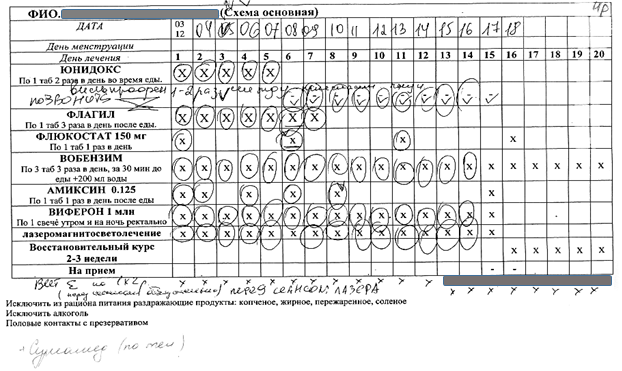 ФИО. (Схема основная) 4р
ДАТА 03 12 04 05 06 07 08 09 10 11 12 13 14 15 16 17 18
День менструации
День лечения 1 2 3 4 5 6 7 8 9 10 11 12 13 14 15 16 17 18 19 20
ЮНИДОКС x x x x x
По 1 таб 2 раза в день во время еды.
1-2 раз
позвонить
ФЛАГИЛ x x x x x x x
По 1 таб 3 раза в день после еды.
ФЛЮКОСТАТ 150 мг x x x x
По 1 таб 1 раз в день
ВОБЕНЗИМ x x x x x x x x x x x x x x x x x x x x
По 3 таб 3 раза в день, за 30 мин до
еды +200 мл воды
АМИКСИН 0.125 x x x x x x
По 1 таб 1 раз в день после еды
ВИФЕРОН 1 млн x x x x x x x x x x x x x x x
По 1 свече утром и на ночь ректально
лазеромагнитосветолечение x x x x x x x x x x x x x x x
Восстановительный курс x x x x x
2-3 недели
На прием - -
Вит Е по 1x2
перед сеансом лазера
Исключить из рациона питания раздражающие продукты: копченое, жирное, пережаренное, соленое
Исключить алкоголь
Половые контакты с презервативом
+ Сумамед